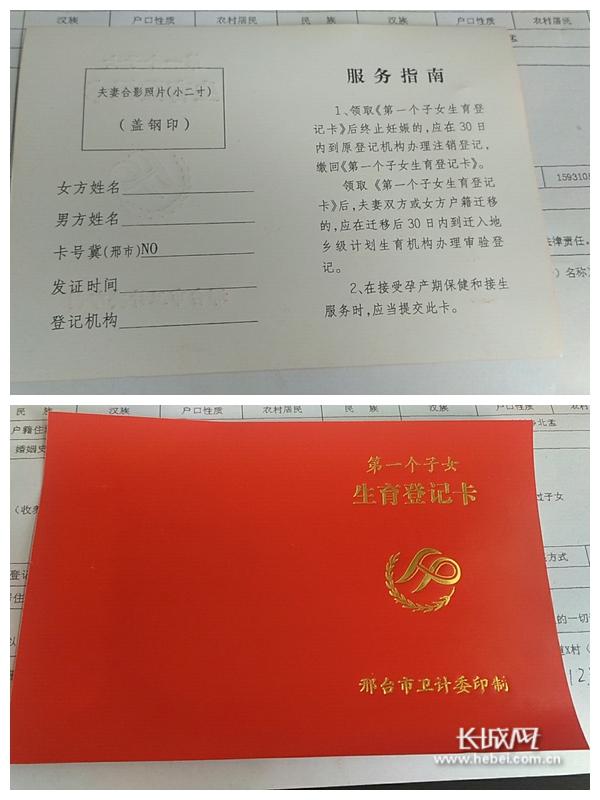 汉族 户口性质 农村居民 民 族 汉族 户口性质 农村居民
夫妻合影照片(小二寸)
(盖钢印)
女方姓名
男方姓名
卡号冀(邢市)NO
发证时间
登记机构
服务指南
1、领取《第一个子女生育登
记卡》后终止妊娠的,应在30日
内到原登记机构办理注销登记,
缴回《第一个子女生育登记卡》。
领取《第一个子女生育登记
卡》后,夫妻双方或女方户籍迁移
的,应在迁移后30日内到迁入地
乡级计划生育机构办理审验登
记。
2、在接受孕产期保健和接生
服务时,应当提交此卡。
1593105
法律责任。
)名称
民 族 汉族 户口性质 农村居民 民 族 汉族 户口性质 农村
户籍住
北孟
婚姻史
(收养
过子女
方式
登记
的一切
第一个子女
生育登记卡
邢台市卫计委印制
长城网
www.hebei.com.cn